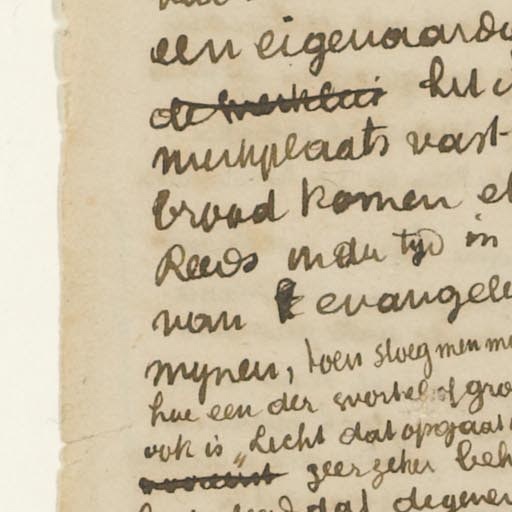 een eigenaardi
de werklui het
werkplaats vast-
brood komen e
Reeds in den tijd in
van evangel
mynen, toen sloeg men m
hoe een der wortel of gro
ook is "Licht dat opgaat
zeer zeker beh
dat degene